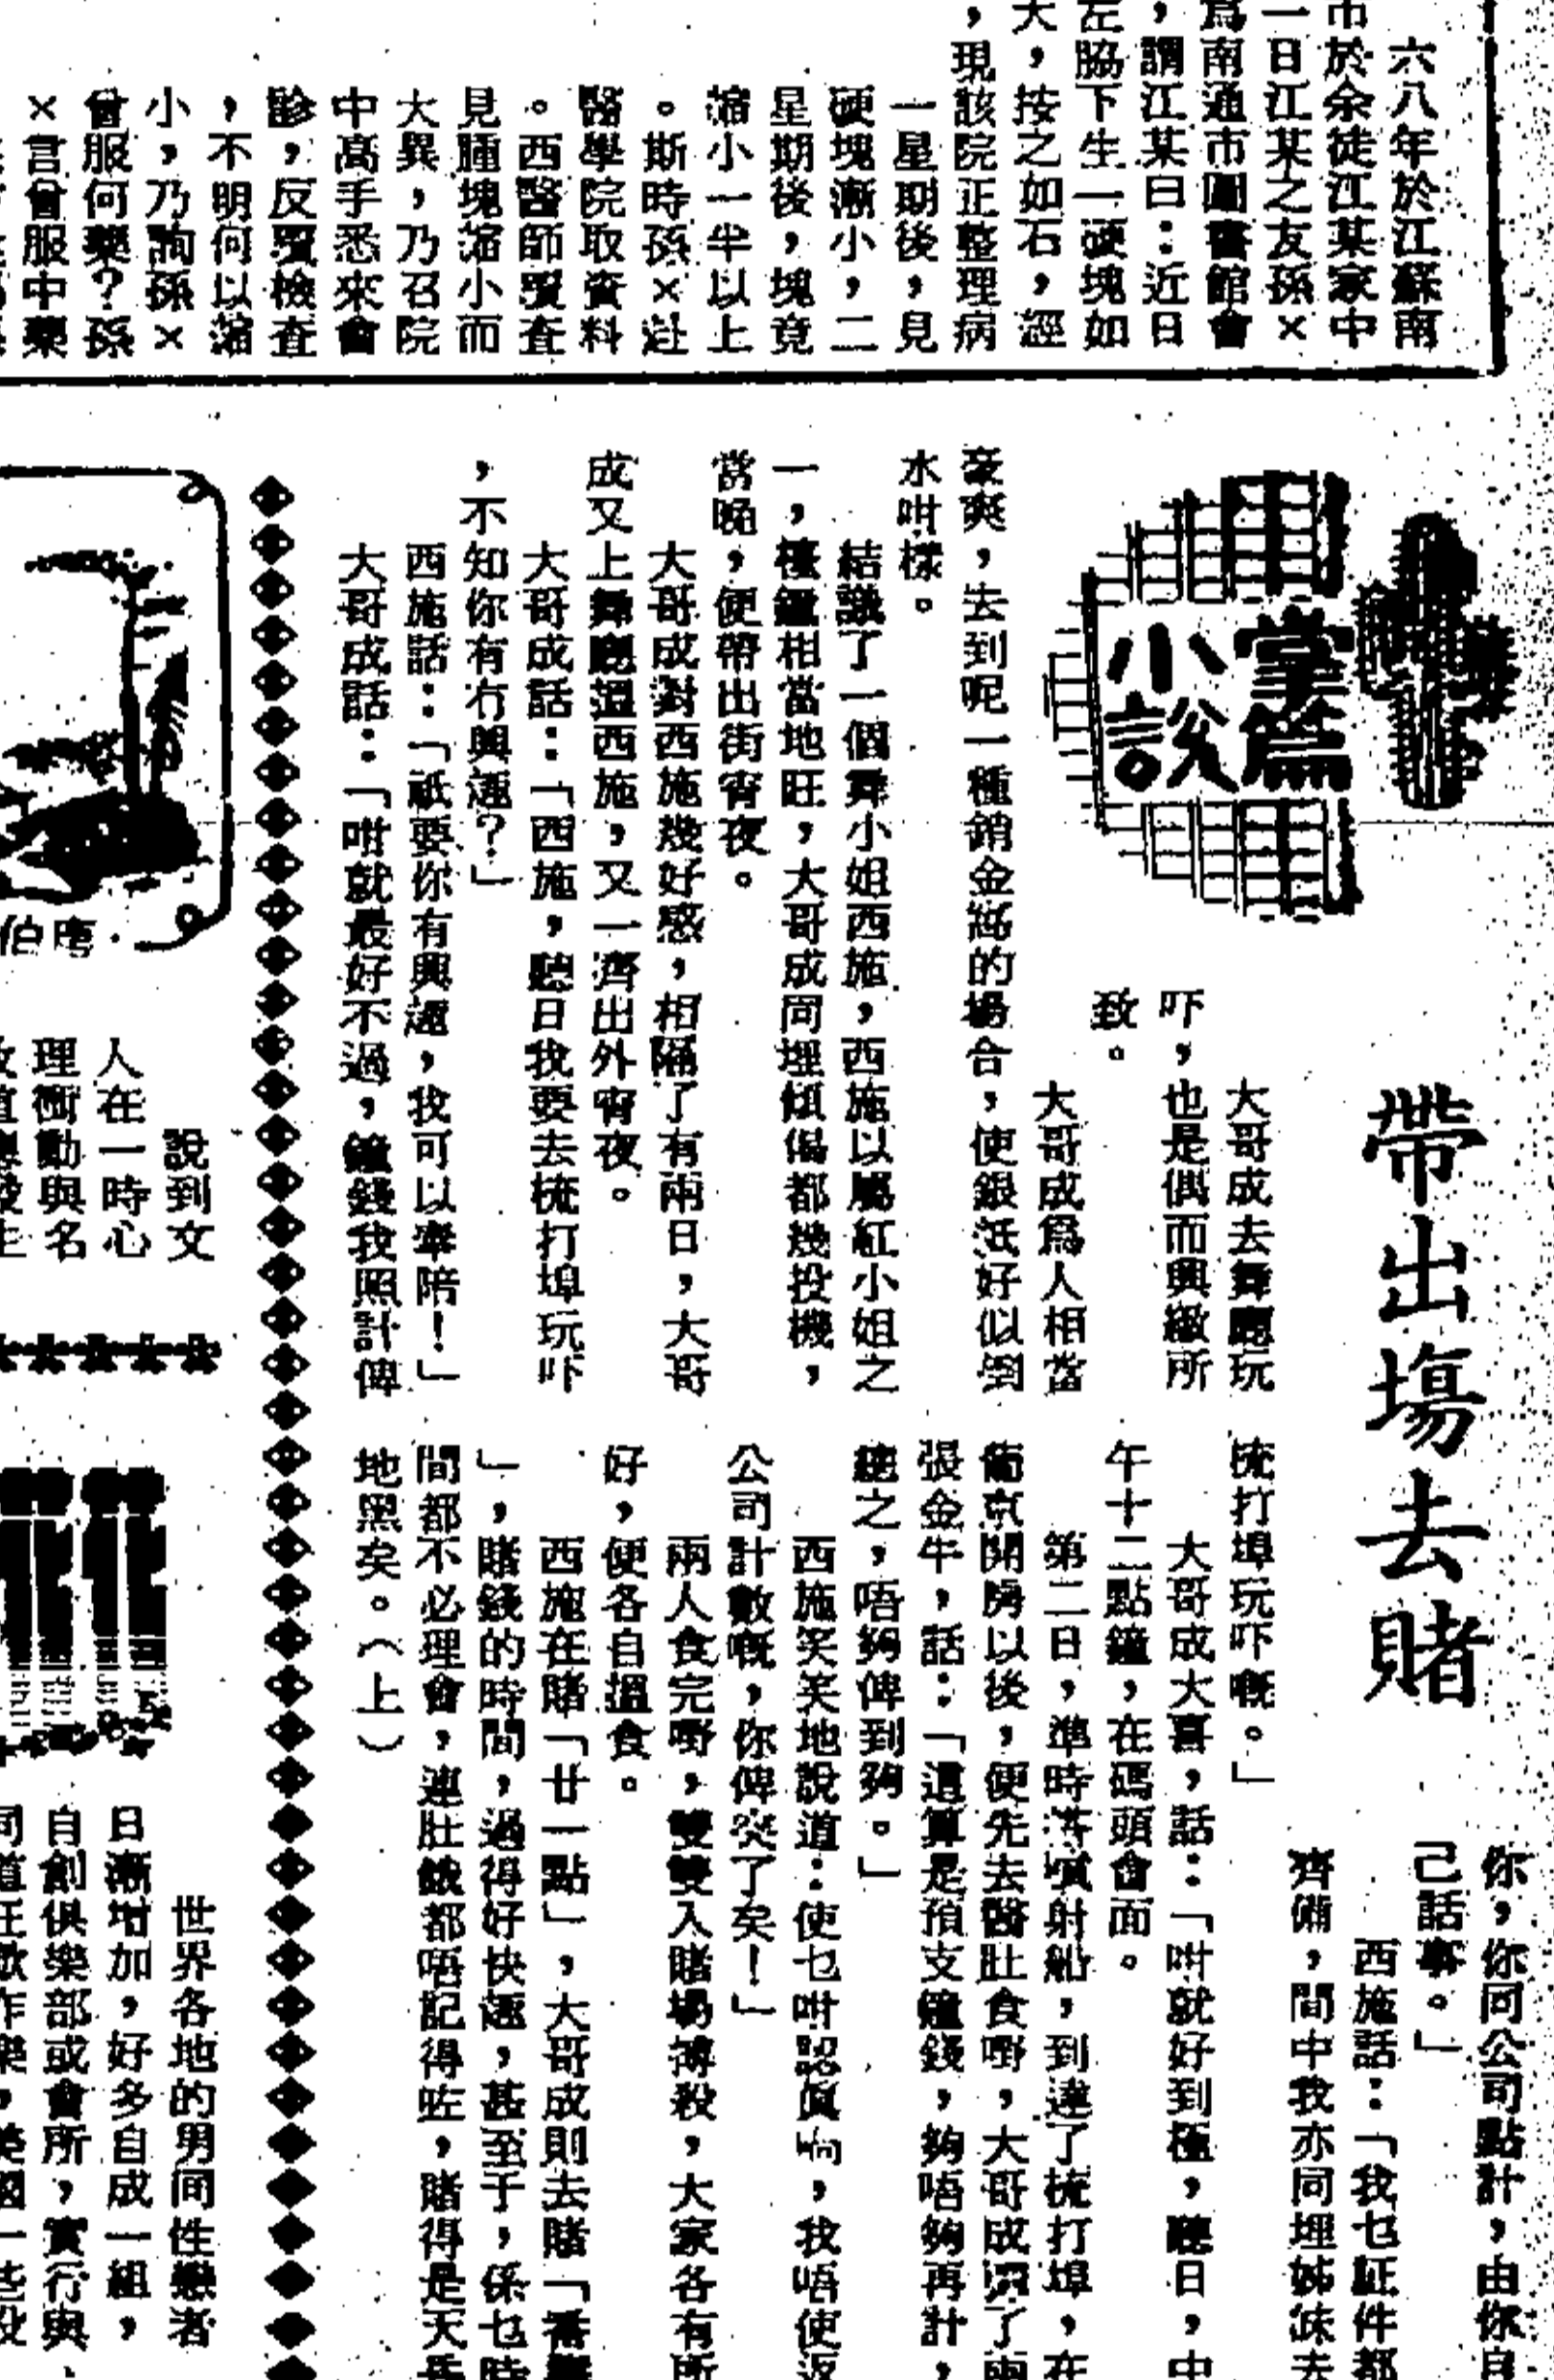 六八年於江蘇南
市於余徒江某家中
一日江某之友孫×
爲南通市圖書館會
，謂江某曰：近日
左脇下生一硬塊如
大，按之如石，經
，現該院正整理病
一星期後，見
硬塊漸小，二
星期後，塊竟
縮小一半以上
。斯時孫×赴
醫學院取資料
。西醫師覆查
見腫塊縮小而
大異，乃召院
中高手悉來會
診，反覆檢查
，不明何以縮
小，乃詢孫×
曾服何藥？孫
×言曾服中藥
掌篇
小說
帶出場去賭
大哥成去舞廳玩
吓，也是偶而興緻所
致。
大哥成爲人相當
豪爽，去到呢一種銷金窩的場合，使銀紙好似倒
水咁樣。
結識了一個舞小姐西施，西施以屬紅小姐之
一，檯鐘相當地旺，大哥成同埋傾偈都幾投機，
當晚，便帶出街宵夜。
大哥成對西施幾好感，相隔了有兩日，大哥
成又上舞廳搵西施，又一齊出外宵夜。
大哥成話：「西施，聽日我要去梳打埠玩吓
，不知你有冇興趣？」
西施話：「祇要你有興趣，我可以奉陪！」
大哥成話：「咁就最好不過，鐘錢我照計俾
你，你同公司點計，由你自
己話事。」
西施話：「我乜証件都
齊備，間中我亦同埋姊妹去
梳打埠玩吓嘅。」
大哥成大喜，話：「咁就好到極，聽日，中
午十二點鐘，在碼頭會面。
第二日，準時落噴射船，到達了梳打埠，在
葡京開房以後，便先去醫肚食嘢，大哥成攞了兩
張金牛，話：「這算是預支鐘錢，夠唔夠再計，
總之，唔夠俾到夠。」
西施笑笑地說道：使乜咁認眞吶，我唔使返
公司計數嘅，你俾突了矣！」
兩人食完嘢，雙雙入賭場搏殺，大家各有所
好，便各自搵食。
西施在賭「廿一點」，大哥成則去賭「番
」，賭錢的時間，過得好快趣，甚至于，係乜時
間都不必理會，連肚餓都唔記得咗，賭得是天昏
地黑矣。（上）
唐伯
說到文
人在一時心
理衝動與名
世界各地的男同性戀者
日漸增加，好多自成一組，
自創俱樂部或會所，實行與
同道狂歡作樂，美國一些設